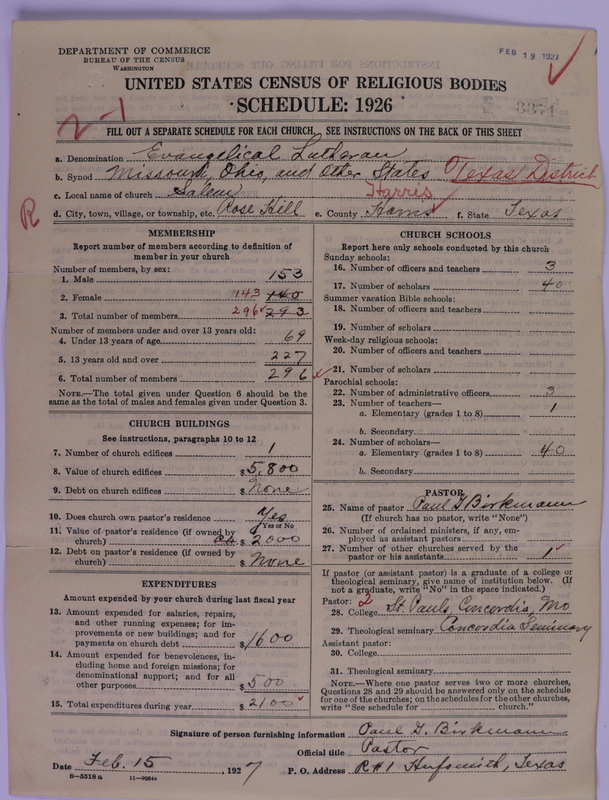 DEPARTMENT OF COMMERCE
BUREAU OF THE CENSUS
WASHINGTON
FEB 19 1927
UNITED STATES CENSUS OF RELIGIOUS BODIES
SCHEDULE: 1926
2-1
FILL OUT A SEPARATE SCHEDULE FOR EACH CHURCH. SEE INSTRUCTIONS ON THE BACK OF THIS SHEET
a. Denomination Evangelical Lutheran
b. Synod Missouri, Ohio, and Other States Texas District
c. Local name of church Salem Harris
R
d. City, town, village, or township, etc. Rose Hill e. County Harris f. State Texas
MEMBERSHIP
Report number of members according to definition of
member in your church
Number of members, by sex:
1. Male 153
2. Female 143 140
3. Total number of members 296 293
Number of members under and over 13 years old:
4. Under 13 years of age 69
5. 13 years old and over 227
6. Total number of members 296
NOTE.—The total given under Question 6 should be
same as the total of males and females given under Question 3.
CHURCH BUILDINGS
See instructions, paragraphs 10 to 12
7. Number of church edifices 1
8. Value of church edifices $ 5,800
9. Debt on church edifices $ None
10. Does church own pastor's residence Yes
Yes or No
11. Value of pastor's residence (if owned by
church) $ 2000
12. Debt on pastor's residence (if owned by
church) $ None
EXPENDITURES
Amount expended by your church during last fiscal year
13. Amount expended for salaries, repairs,
and other running expenses; for im-
provements or new buildings; and for
payments on church debt $ 1600
14. Amount expended for benevolences, in-
cluding home and foreign missions; for
denominational support; and for all
other purposes $ 500
15. Total expenditures during year $ 2100
CHURCH SCHOOLS
Report here only schools conducted by this church
Sunday schools:
16. Number of officers and teachers 3
17. Number of scholars 40
Summer vacation Bible schools:
18. Number of officers and teachers
19. Number of scholars
Week-day religious schools:
20. Number of officers and teachers
21. Number of scholars
Parochial schools:
22. Number of administrative officers 3
23. Number of teachers—
a. Elementary (grades 1 to 8) 1
b. Secondary
24. Number of scholars—
a. Elementary (grades 1 to 8) 40
b. Secondary
PASTOR
25. Name of pastor Paul G Birkmann
(If church has no pastor, write "None")
26. Number of ordained ministers, if any, em-
ployed as assistant pastors
27. Number of other churches served by the
pastor or his assistants 1
If pastor (or assistant pastor) is a graduate of a college or
theological seminary, give name of institution below. (If
not a graduate, write "No" in the space indicated.)
Pastor: 2
28. College St. Pauls, Concordia, Mo
29. Theological seminary Concordia Seminary
Assistant pastor:
30. College
31. Theological seminary
NOTE.—Where one pastor serves two or more churches,
Questions 28 and 29 should be answered only on the schedule
for one of the churches; on the schedules for the other churches,
write "See schedule for church."
Signature of person furnishing information Paul G. Birkmann
Official title Pastor
Date Feb. 15, 1927 P. O. Address R#1 Hufsmith, Texas
8—5518a 11—9034